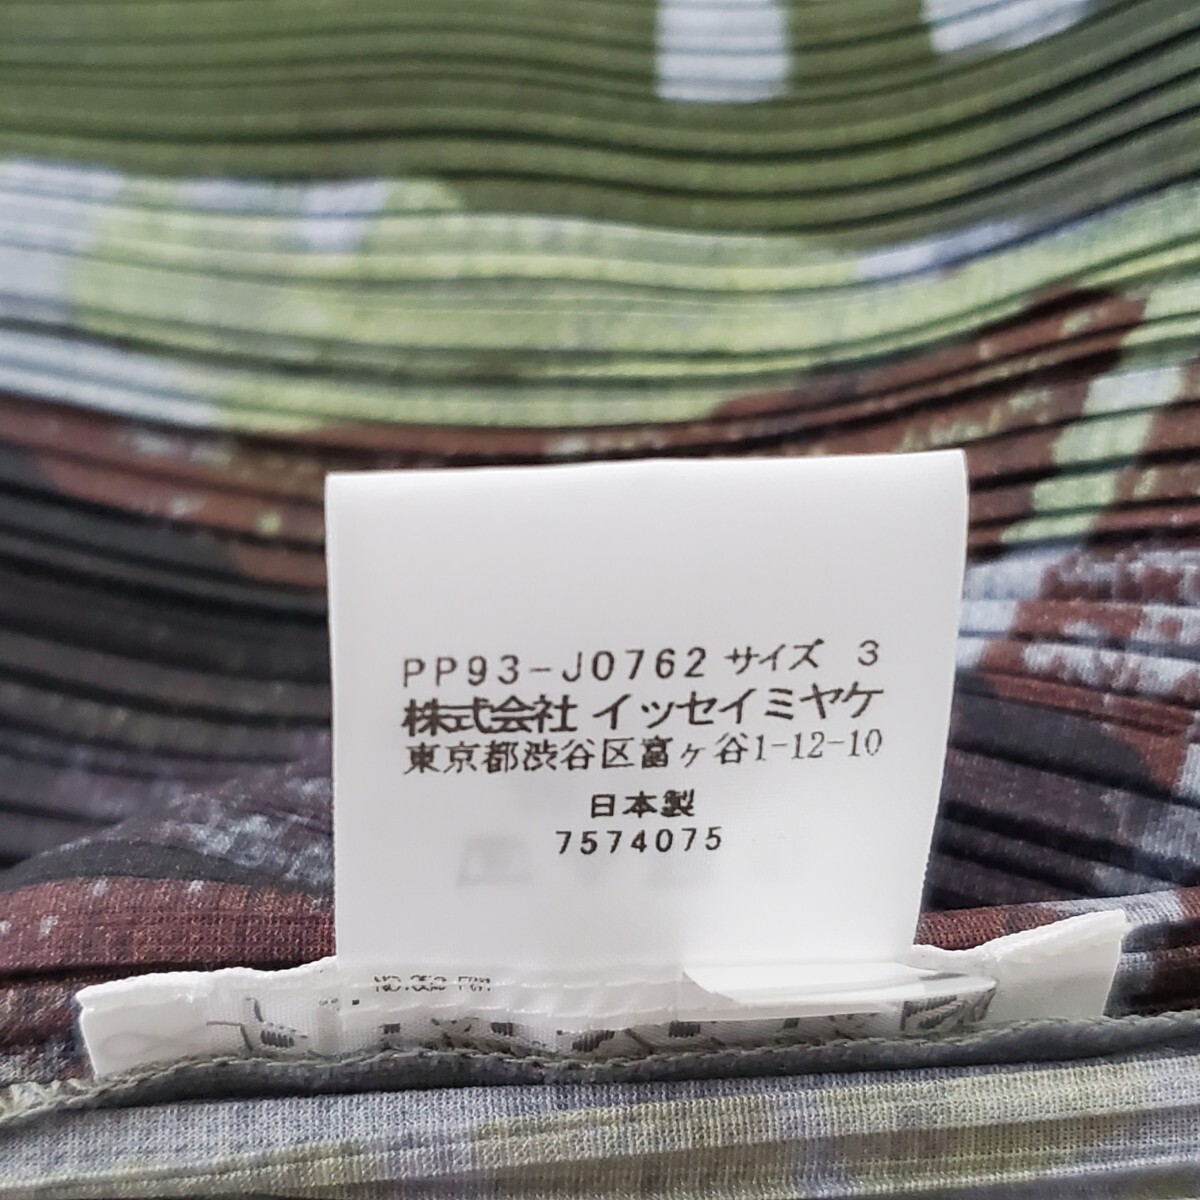 PP93-J0762 サイズ 3
株式会社 イッセイミヤケ
東京都渋谷区富ヶ谷1-12-10
日本製
7574075